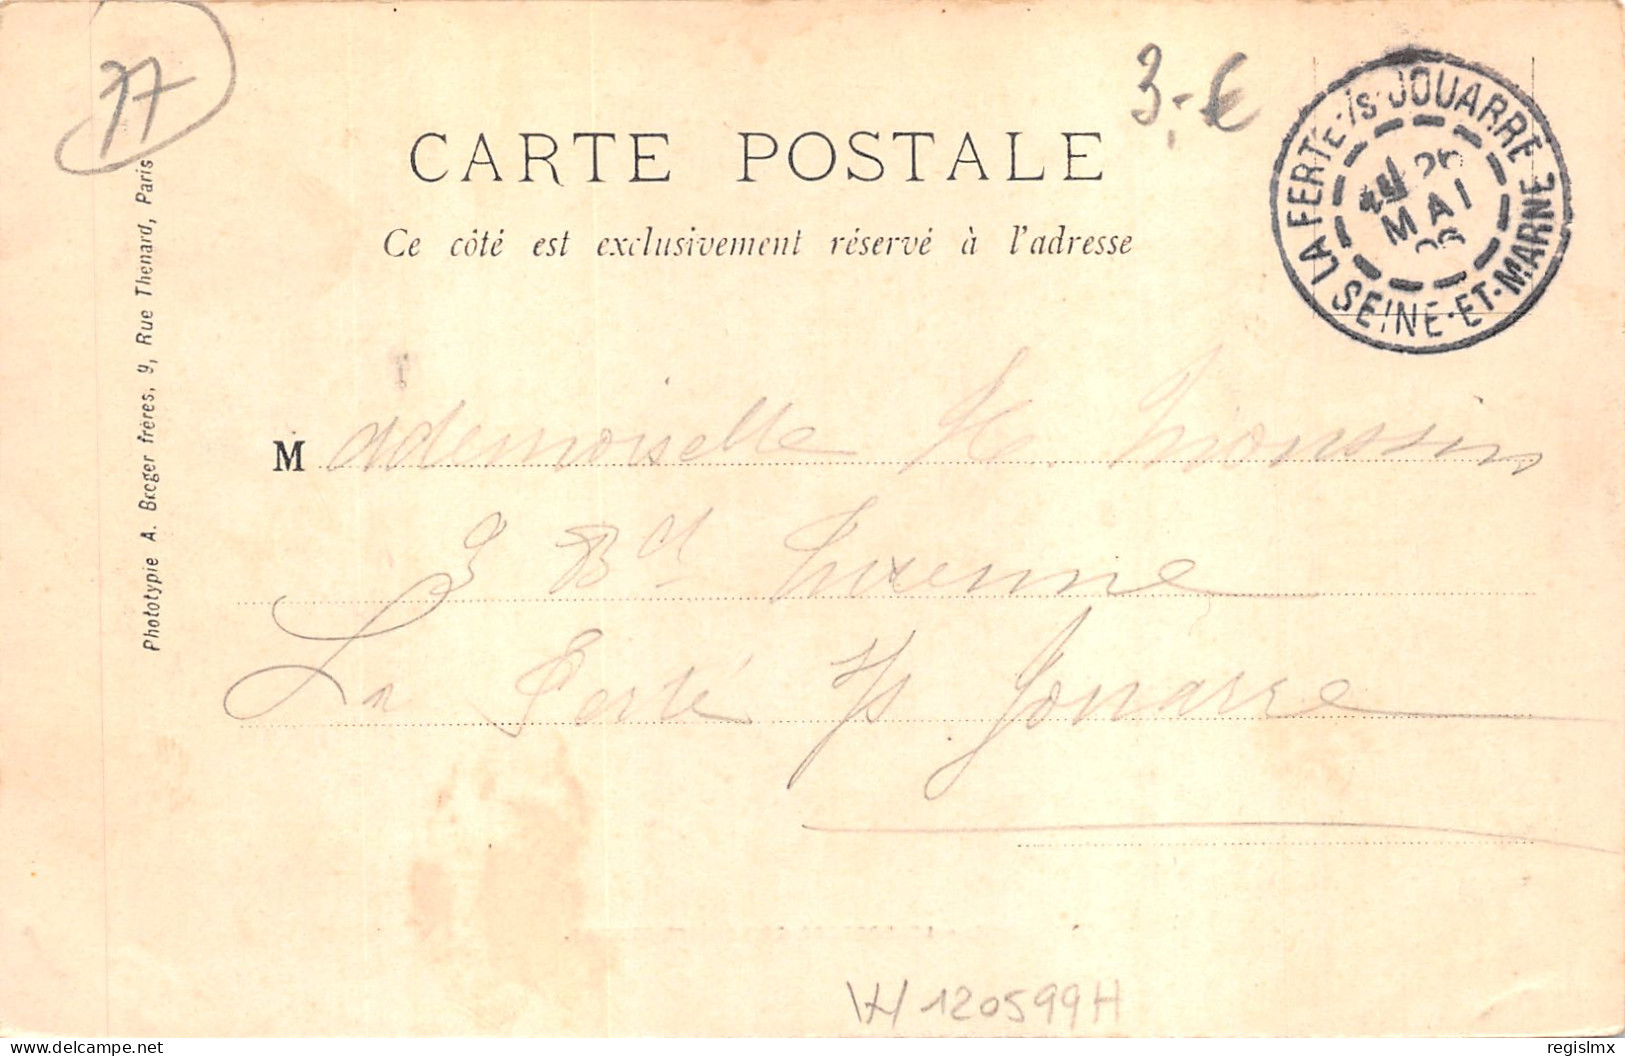 77
3.- €
LA FERTÉ-/S-JOUARRE
MAI
SEINE-ET-MARNE
CARTE POSTALE
Ce côté est exclusivement réservé à l'adresse
Phototypie A. Breger frères, 9, Rue Thenard, Paris
Mademoiselle
3 Bd Turenne
La Ferté s/s Jouarre
120599H
delcampe.net
regislmx